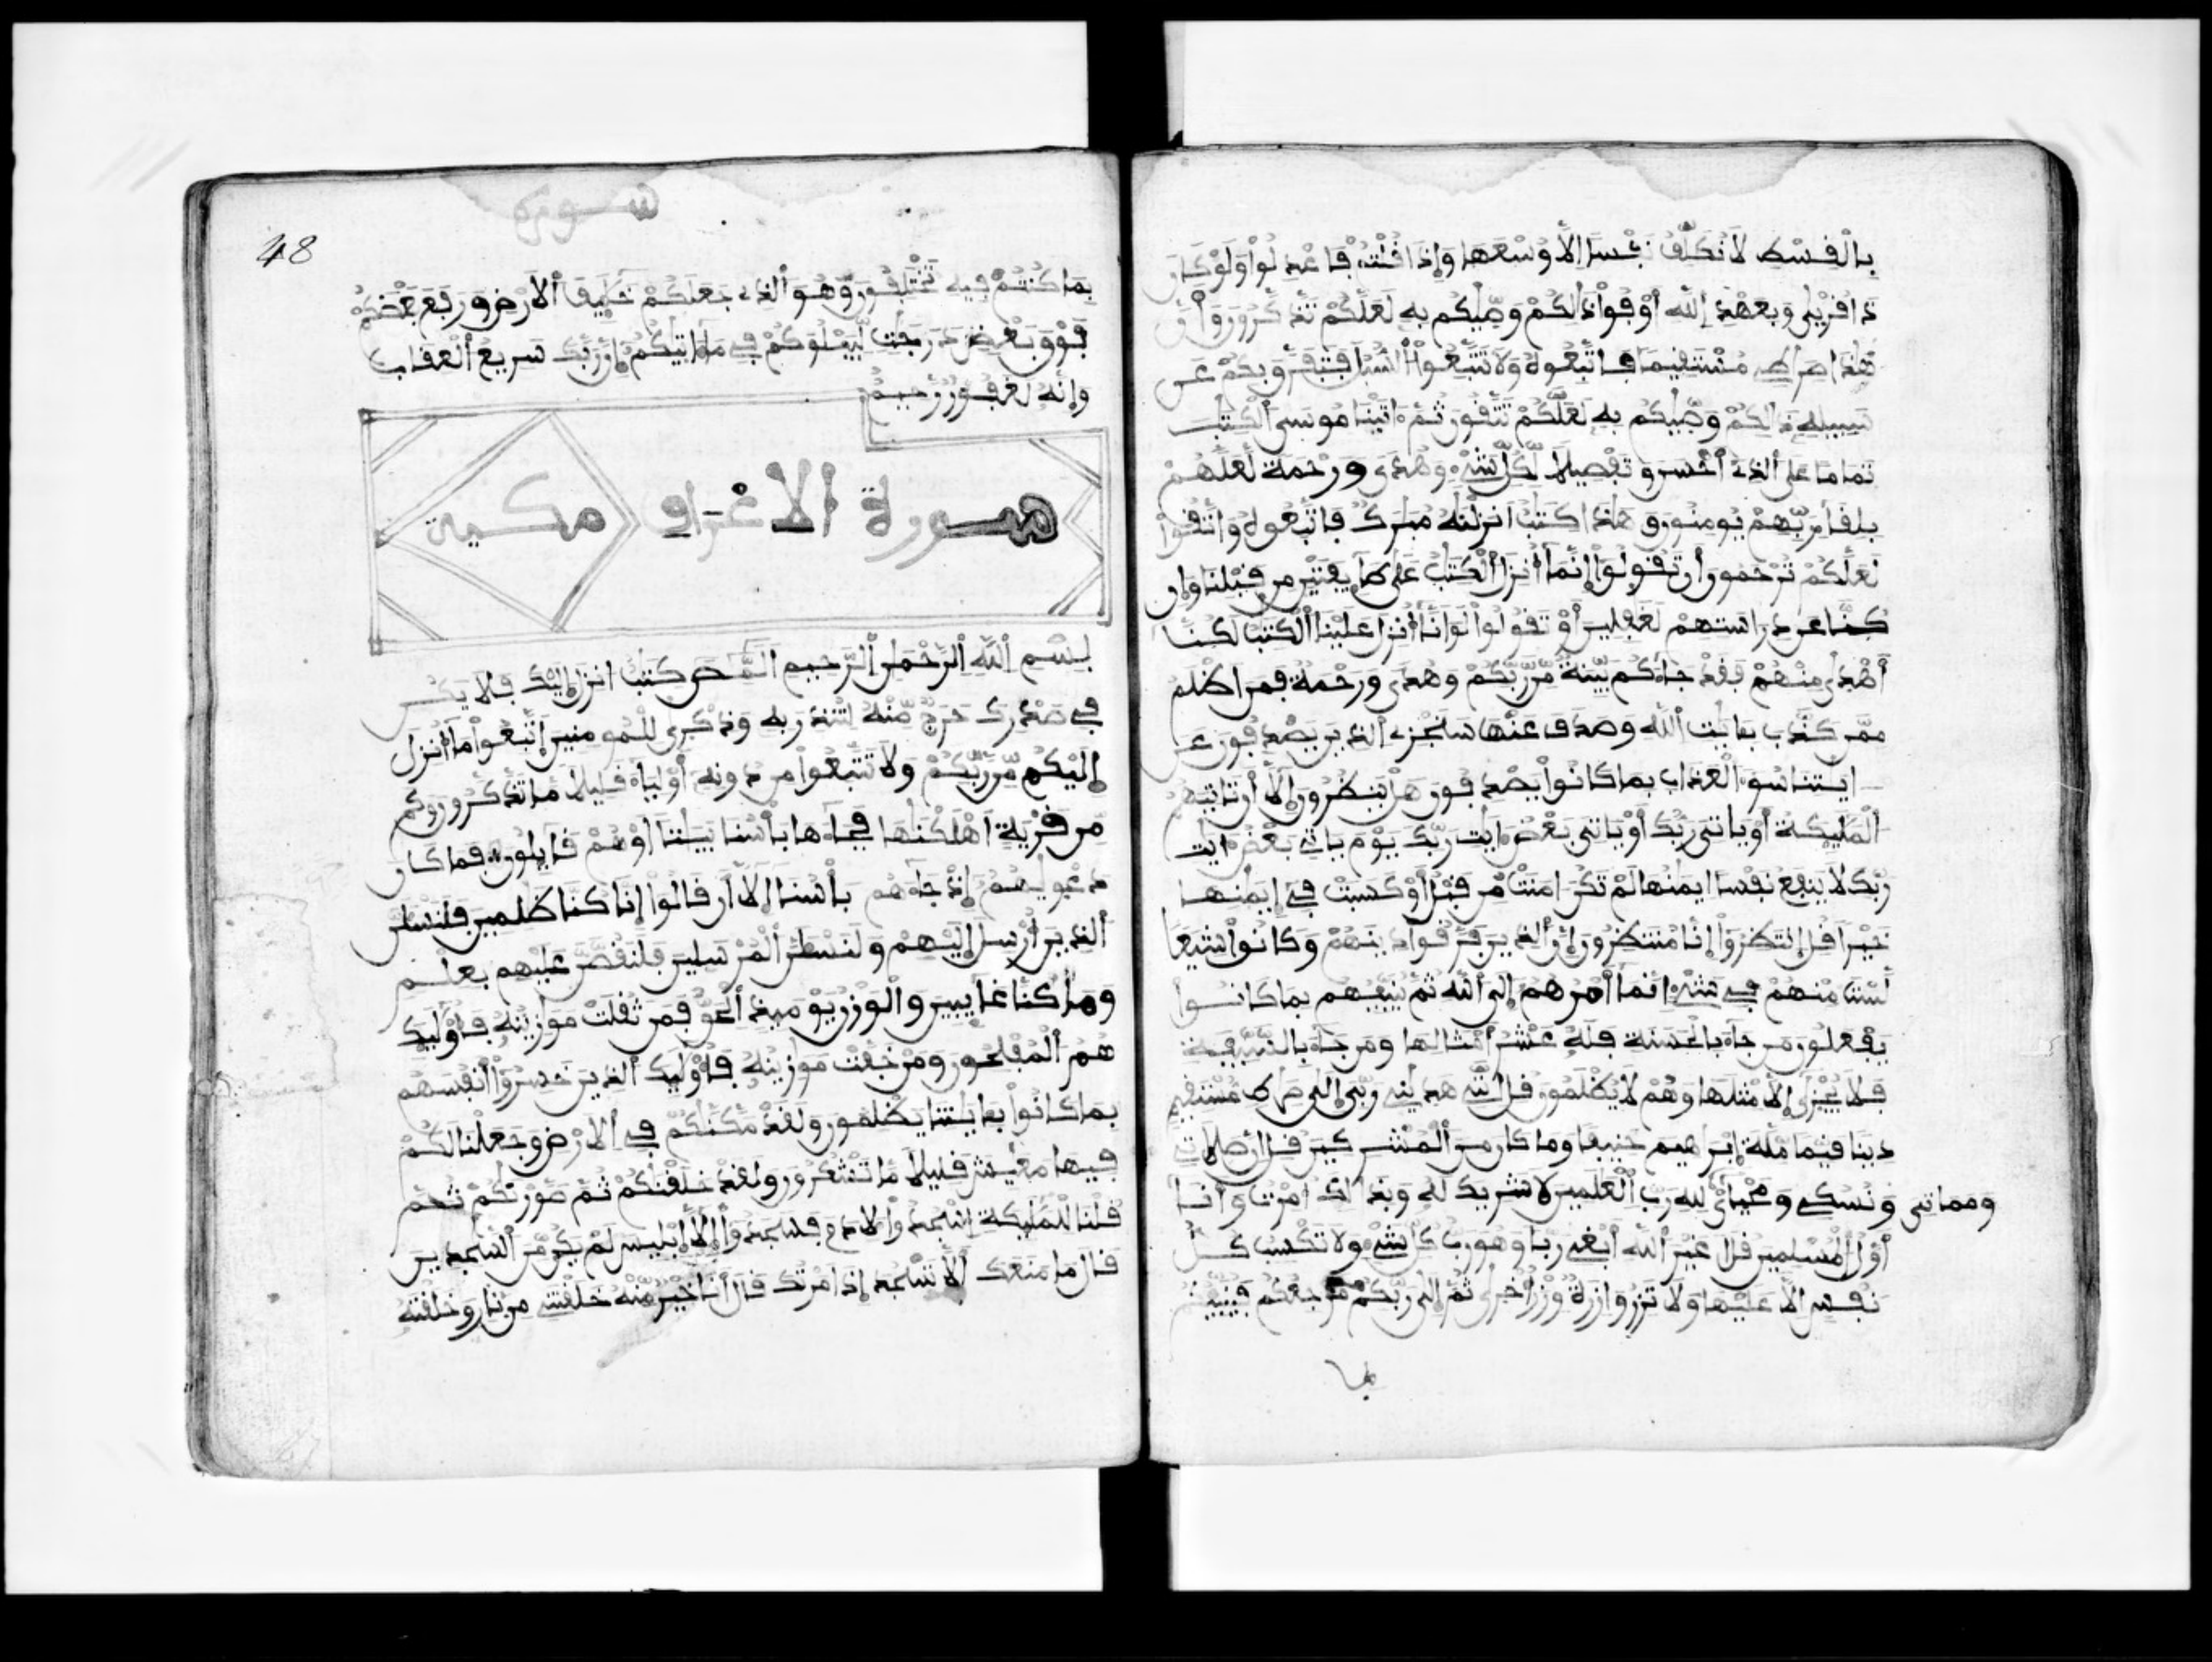 بالفسط لا نكلف نفسا الا وسعها وإذا فلتم فاعدلوا ولو كان
ذا فربى وبعهد الله أوفوا ذالكم وصيكم به لعلكم تذكرون وأن
هذا صراطي مستفيما فاتبعوه ولا تتبعوا السبل فتفرق بكم عن
سبيله ذالكم وصيكم به لعلكم تتفون ثم اتينا موسى الكتب
تماما على الذي أحسن وتفصيلا لكل شيء وهدى ورحمة لعلهم
بلفاء ربهم يومنون وهذا كتب انزلنه مبرك فاتبعوه واتفوا
لعلكم ترحمون أن تفولوا إنما أنزل الكتب على طايفتين من فبلنا وإن
كنا عن دراستهم لغفلين أو تفولوا لو انا أنزل علينا الكتب لكنا
أهدى منهم ففد جاءكم بينة من ربكم وهدى ورحمة فمن اظلم
ممن كذب بايت الله وصدف عنها سنجزي الذين يصدفون عن
ايتنا سوء العذاب بما كانوا يصدفون هل ينظرون إلا أن تاتيهم
المليكة أو ياتي ربك أو ياتي بعض ايت ربك يوم ياتي بعض ايت
ربك لا ينفع نفسا ايمنها لم تكن امنت من فبل أو كسبت في إيمنها
خيرا فل انتظروا إنا منتظرون إن الذين فرفوا دينهم وكانوا شيعا
لست منهم في شيء انما أمرهم إلى الله ثم ينبيهم بما كانوا
يفعلون من جاء بالحسنة فله عشر أمثالها ومن جاء بالسيية
فلا يجزى إلا مثلها وهم لا يظلمون فل انني هديني ربي إلى صراط مستفيم
دينا فيما ملة إبرهيم حنيفا وما كان من المشركين فل ان صلاتي
ونسكي ومحياي ومماتي لله رب العلمين لا شريك له وبذالك امرت وأنا
أول المسلمين فل أغير الله أبغي ربا وهو رب كل شيء ولا تكسب كل
نفس الا عليها ولا تزر وازرة وزر أخرى ثم إلى ربكم مرجعكم فينبيكم
بما
48
سورة
بما كنتم فيه تختلفون وهو الذي جعلكم خليف الارض ورفع بعضكم
فوق بعض درجت ليبلوكم في ما اتيكم إن ربك سريع العفاب
وإنه لغفور رحيم
سورة الاعراف مكية
بسم الله الرحمن الرحيم المص كتب انزل إليك فلا يكن
في صدرك حرج منه لتنذر به وذكرى للمومنين اتبعوا ما أنزل
إليكم من ربكم ولا تتبعوا من دونه أولياء فليلا ما تذكرون وكم
من فرية اهلكنها فجاءها بأسنا بيتا أو هم فايلون فما كان
دعويهم إذ جاءهم بأسنا إلا أن فالوا إنا كنا ظلمين فلنسلن
الذين أرسل إليهم ولنسلن المرسلين فلنفصن عليهم بعلم
وما كنا غايبين والوزن يوميذ الحق فمن ثفلت موزينه فأوليك
هم المفلحون ومن خفت موزينه فأوليك الذين خسروا أنفسهم
بما كانوا بايتنا يظلمون ولفد مكنكم في الارض وجعلنا لكم
فيها معيش فليلا ما تشكرون ولفد خلفنكم ثم صورنكم ثم
فلنا للمليكة اسجدوا لادم فسجدوا إلا إبليس لم يكن من السجدين
فال ما منعك ألا تسجد إذ امرتك فال أنا خير منه خلفتني من نار وخلفته